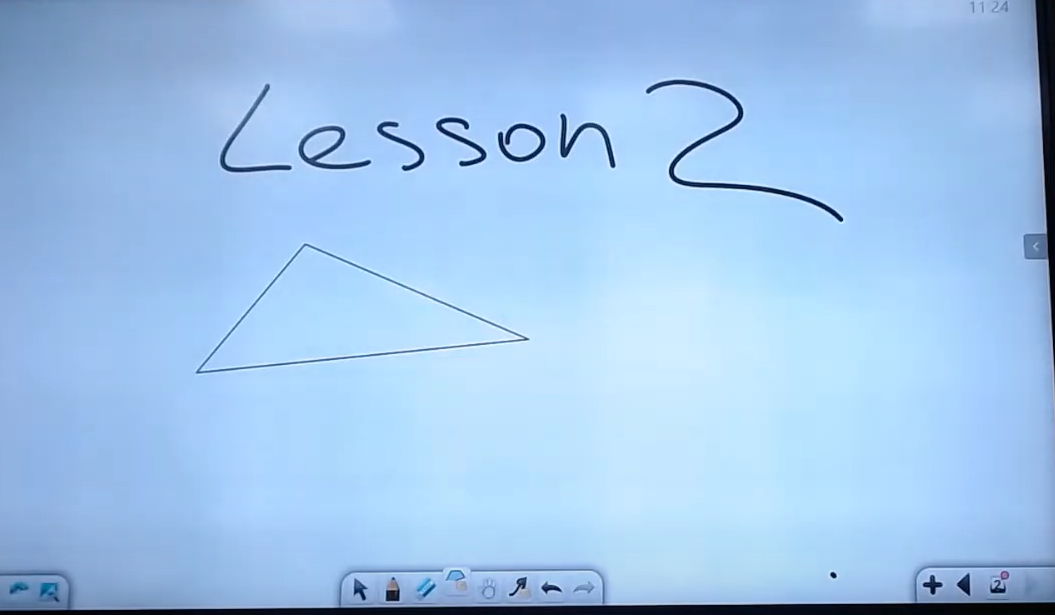 11 24
Lesson 2
2